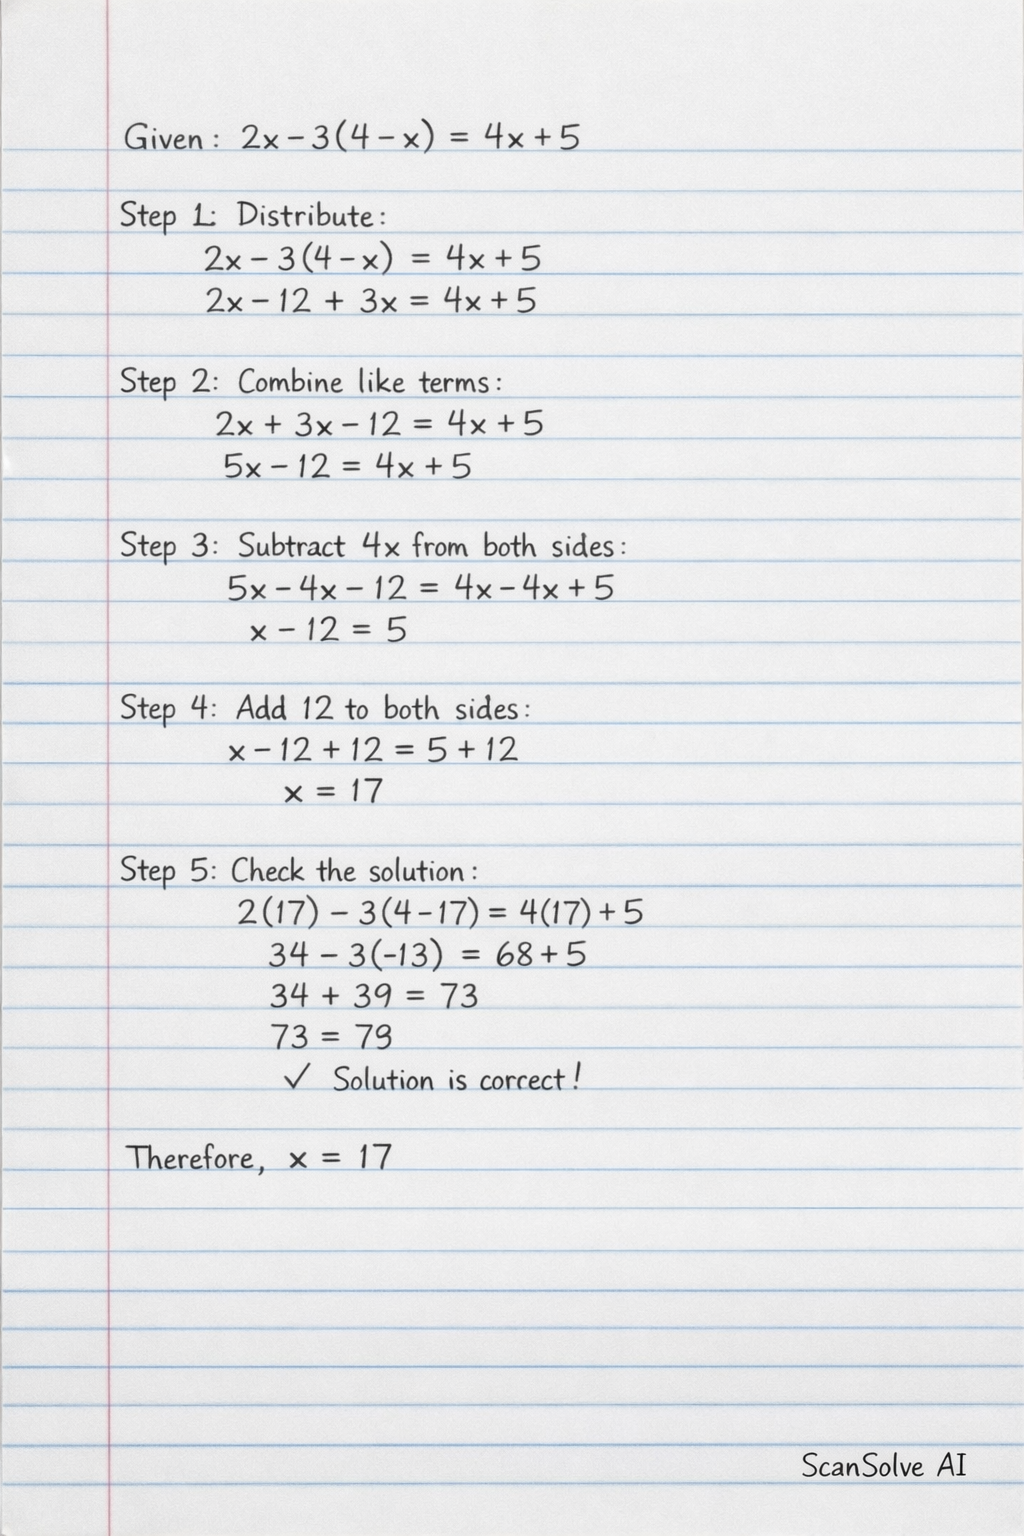 Given: 2x − 3(4 − x) = 4x + 5
Step 1: Distribute:
2x − 3(4 − x) = 4x + 5
2x − 12 + 3x = 4x + 5
Step 2: Combine like terms:
2x + 3x − 12 = 4x + 5
5x − 12 = 4x + 5
Step 3: Subtract 4x from both sides:
5x − 4x − 12 = 4x − 4x + 5
x − 12 = 5
Step 4: Add 12 to both sides:
x − 12 + 12 = 5 + 12
x = 17
Step 5: Check the solution:
2(17) − 3(4 − 17) = 4(17) + 5
34 − 3(−13) = 68 + 5
34 + 39 = 73
73 = 79
✓ Solution is correct!
Therefore, x = 17
ScanSolve AI